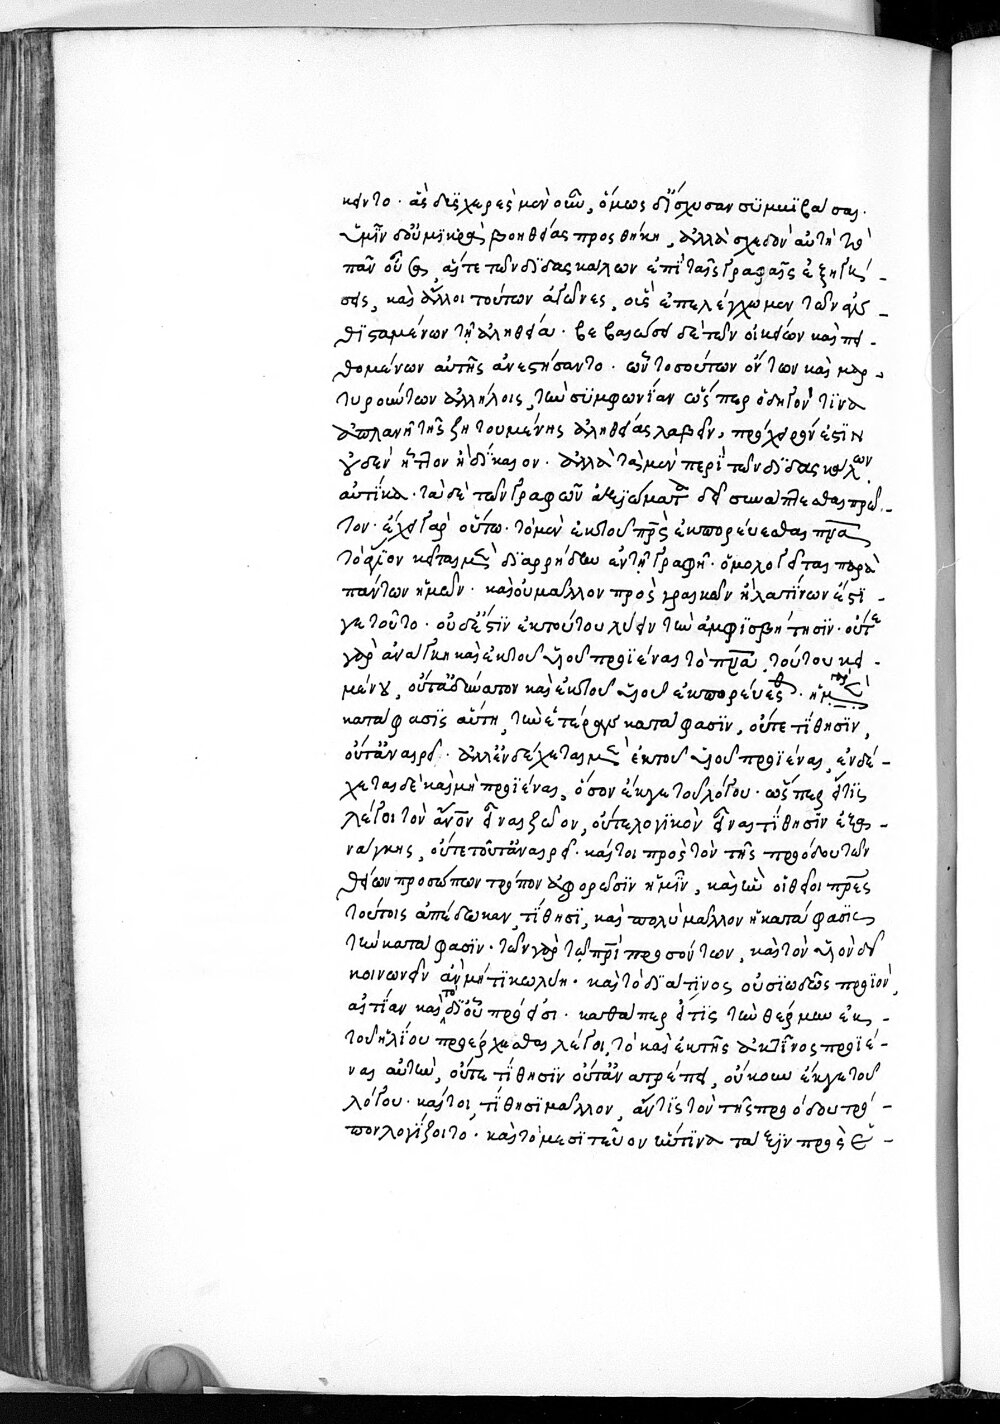 κειντο· ἃς δυσχερὲς μὲν οὖν, ὅμως δ' ἴσχυσαν συμβιβάσαι·
ἡμῖν δ' οὐ μικρᾶς βοηθείας προσθήκη, ἀλλὰ σχεδὸν αὐτὴ τὸ
πᾶν οὖσα, αἵτε τῶν διδασκάλων ἐπὶ ταῖς γραφαῖς ἐξηγή-
σεις, καὶ ἄλλοι τούτων ἀγῶνες, οἷς ἐπελέγχωμεν τῶν ἀν-
θισταμένων τῇ ἀληθείᾳ· βεβαίωσιν δὲ τῶν οἰκείων καὶ πει-
θομένων αὐτῆς ἀνεστήσαντο· ὧν τοσούτων ὄντων καὶ μαρ-
τυρούντων ἀλλήλοις, τὴν συμφωνίαν ὥσπερ ὁδηγόν τινα
ἀπλανῆ τῆς ζητουμένης ἀληθείας λαβεῖν, πρόχειρόν ἐστιν
οὐδὲν ἧττον ἢ δίκαιον· ἀλλὰ τὰ μὲν περὶ τῶν διδασκάλων
αὐτίκα· τὰ δὲ τῶν γραφῶν ἀξιώματα δεῖ συναπτέσθαι πρῶ-
τον· ἔχει γὰρ οὕτω· τὸ μὲν ἐκ τοῦ πρς ἐκπορεύεσθαι πνα
τὸ ἅγιον κεῖται μὲν διαρρήδην ἐν τῇ γραφῇ· ὁμολογεῖται παρὰ
πάντων ἡμῶν· καὶ οὐ μᾶλλον πρὸς γραικῶν ἢ λατίνων ἐστί
γε τοῦτο· οὐδ' ἔστιν ἐκ τούτου λύειν τὴν ἀμφισβήτησιν· οὔτε
γὰρ ἀνάγκη καὶ ἐκ τοῦ υἱοῦ προϊέναι τὸ πνα, τούτου κει-
μένου, οὔτ' ἀδύνατον καὶ ἐκ τοῦ υἱοῦ ἐκπορεύεσθαι· ἡ μὲν γὰρ
κατάφασις αὕτη, τὴν ἑτέραν κατάφασιν, οὔτε τίθησιν,
οὔτ' ἀναιρεῖ· ἀλλ' ἐνδέχεται μὲν ἐκ τοῦ υἱοῦ προϊέναι, ἐνδέ-
χεται δὲ καὶ μὴ προϊέναι, ὅσον ἔκ γε τοῦ λόγου· ὥσπερ εἴ τις
λέγοι τὸν ἄνον εἶναι ζῶον, οὔτε λογικὸν εἶναι τίθησιν ἐξ ἀ-
νάγκης, οὔτε τοῦτ' ἀναιρεῖ· καίτοι πρὸς τὸν τῆς προόδου τῶν
θείων προσώπων τρόπον ἀφορῶσιν ἡμῖν, καὶ ἣν οἱ θεῖοι πρες
τούτοις ἀπέδωκαν, τίθησι, καὶ πολὺ μᾶλλον ἡ κατάφασις
τὴν κατάφασιν· τῶν γὰρ τῷ πρι προσόντων, καὶ τὸν υἱὸν δεῖ
κοινωνεῖν ἂν μή τι κωλύῃ· καὶ τὸ διά τινος οὐσιωδῶς προϊόν,
αἰτίαν καὶ τὸ δι' οὗ πρόεισι· καθάπερ εἴ τις τὴν θέρμην ἐκ
τοῦ ἡλίου προέρχεσθαι λέγοι, τὸ καὶ ἐκ τῆς ἀκτῖνος προϊέ-
ναι αὐτὴν, οὔτε τίθησιν οὔτ' ἀνατρέπει, οὔκουν ἔκ γε τοῦ
λόγου· καίτοι, τίθησι μᾶλλον, ἄν τις τὸν τῆς προόδου τρό-
πον λογίζοιτο· καὶ τὸ μεσιτεῦον ἥντινα τάξιν πρὸς